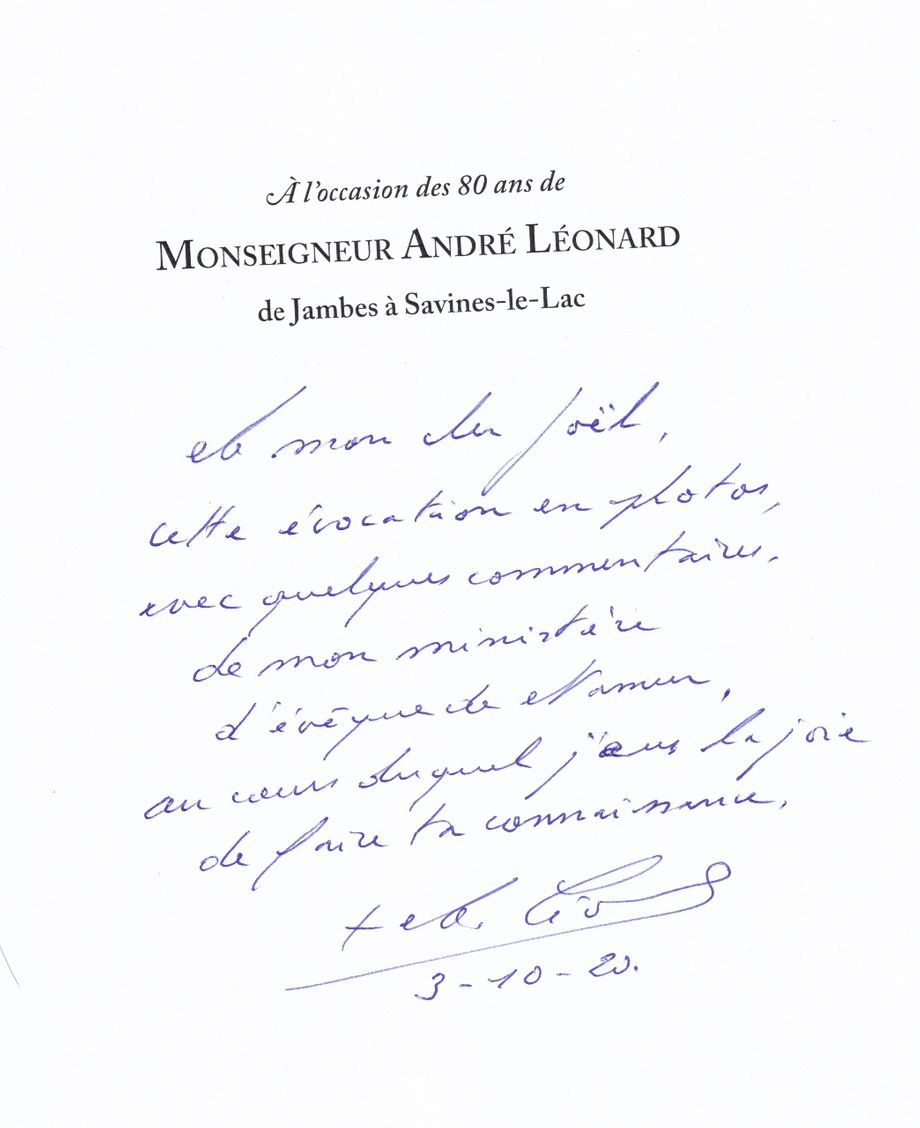 À l'occasion des 80 ans de
MONSEIGNEUR ANDRÉ LÉONARD
de Jambes à Savines-le-Lac
A mon cher Joël,
cette évocation en photos,
avec quelques commentaires,
de mon ministère
d'évêque de Namur,
au cours duquel j'eus la joie
de faire ta connaissance.
+ A. Léonard
3-10-20.